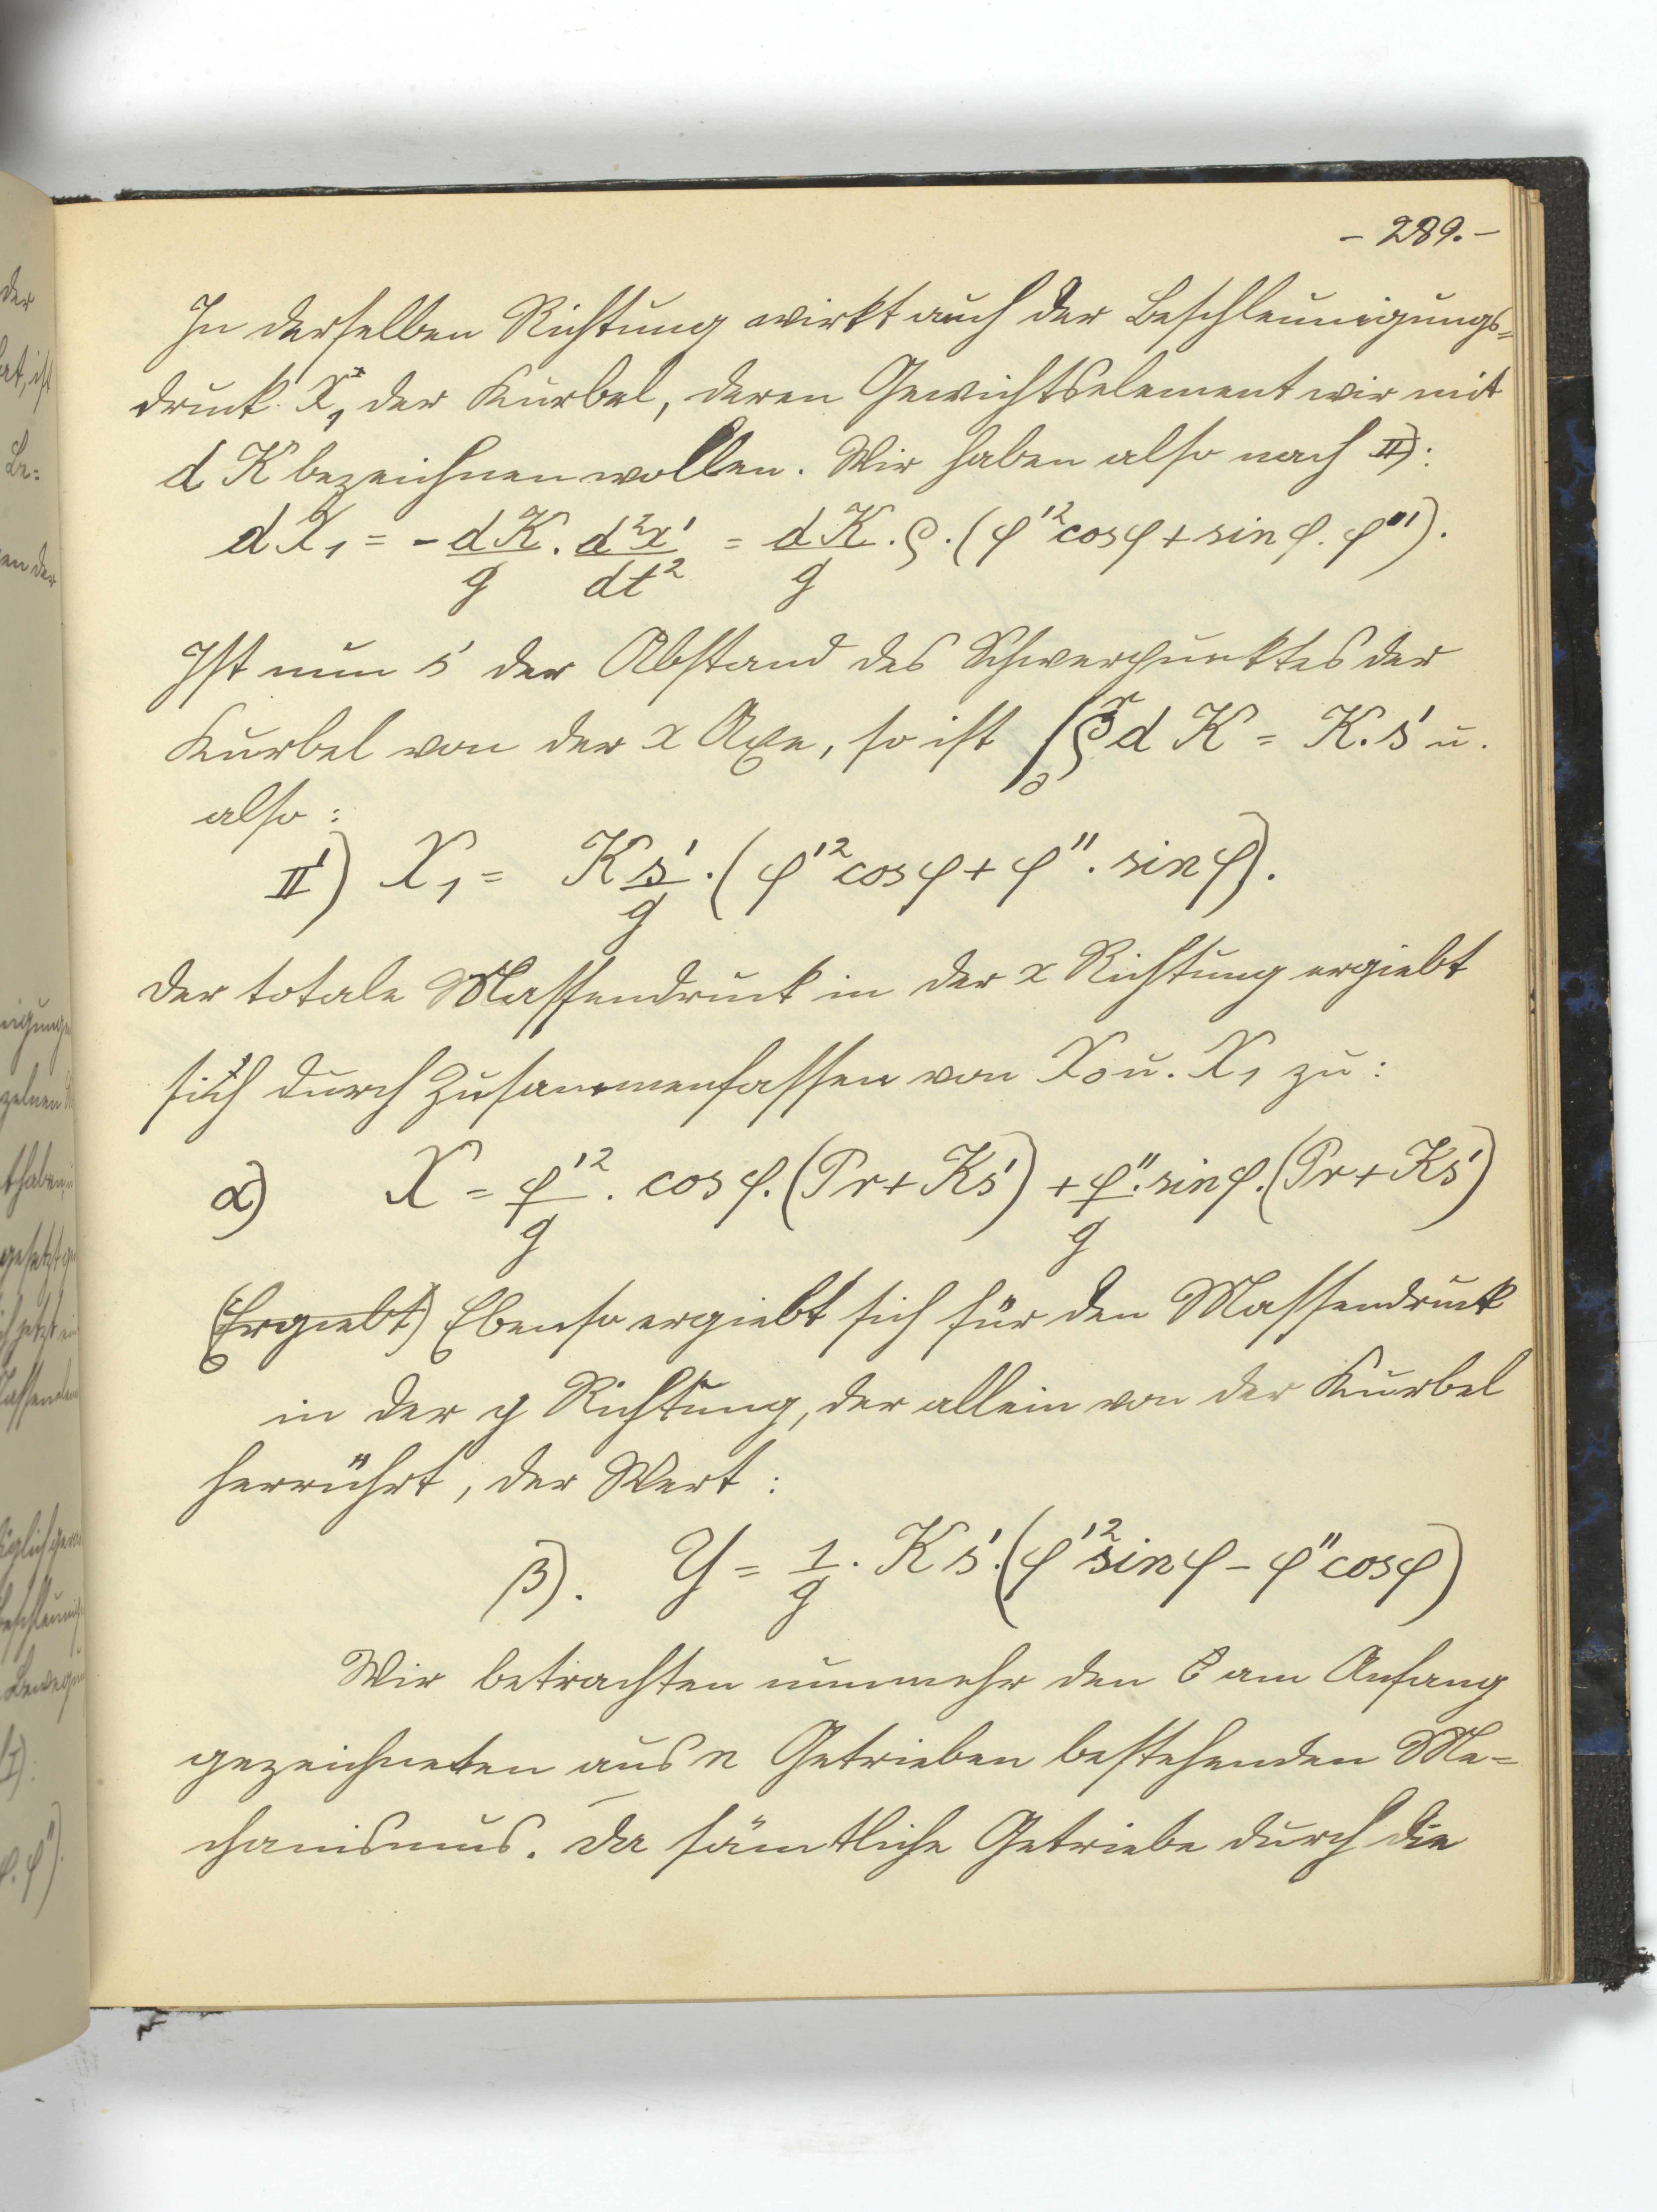 – 289. –
In derselben Richtung wirkt auch der Beschleunigungs=
druck X₁ der Kurbel, deren Gewichtselement wir mit
d K bezeichnen wollen. Wir haben also nach II):
dX₁ = - dK/g . d²x'/dt² = dK/g . ρ . (φ'² cos φ + sin φ . φ'').
Ist nun s' der Abstand des Schwerpunktes der
Kurbel von der x Axe, so ist ∫₀ʳ ρ d K = K. s' u.
also :
II') X₁ = K s'/g . (φ'² cos φ + φ'' . sin φ).
Der totale Massendruck in der x Richtung ergiebt
sich durch Zusammenfassen von X₀ u. X₁ zu :
α) X = φ'²/g . cos φ. (Pr + Ks') + φ''/g . sin φ. (Pr + Ks')
(Ergiebt) Ebenso ergiebt sich für den Massendruck
in der y Richtung, der allein von der Kurbel
herrührt, der Wert :
β). Y = 1/g . K s'. (φ'² sin φ – φ'' cos φ)
Wir betrachten nunmehr den am Anfang
gezeichneten aus n Getrieben bestehenden Me=
chanismus. Da sämtliche Getriebe durch die